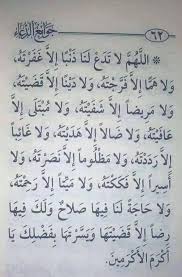 جَوَامِعُ الدُّعَاءِ
٦٢
* اللَّهُمَّ لاَ تَدَعْ لَنَا ذَنْبًا إِلاَّ غَفَرْتَهُ،
وَلا هَمًّا إِلاَّ فَرَّجْتَهُ، وَلا دَيْنًا إِلاَّ قَضَيْتَهُ،
وَلا مَرِيضاً إِلاَّ شَفَيْتَهُ، وَلا مُبْتَلَى إِلاَّ
عَافَيْتَهُ، وَلا ضَالاًّ إِلاَّ هَدَيْتَهُ، وَلا غَائِباً
إِلاَّ رَدَدْتَهُ، وَلا مَظْلُوماً إِلاَّ نَصَرْتَهُ، وَلا
أَسِيراً إِلاَّ فَكَكْتَهُ، وَلا مَيِّتاً إِلاَّ رَحِمْتَهُ،
وَلا حَاجَةً لَنَا فِيهَا صَلاحٌ وَلَكَ فِيهَا
رِضاً إِلاَّ قَضَيْتَهَا وَيَسَّرْتَهَا بِفَضْلِكَ يَا
أَكْرَمَ الأَكْرَمِينَ.